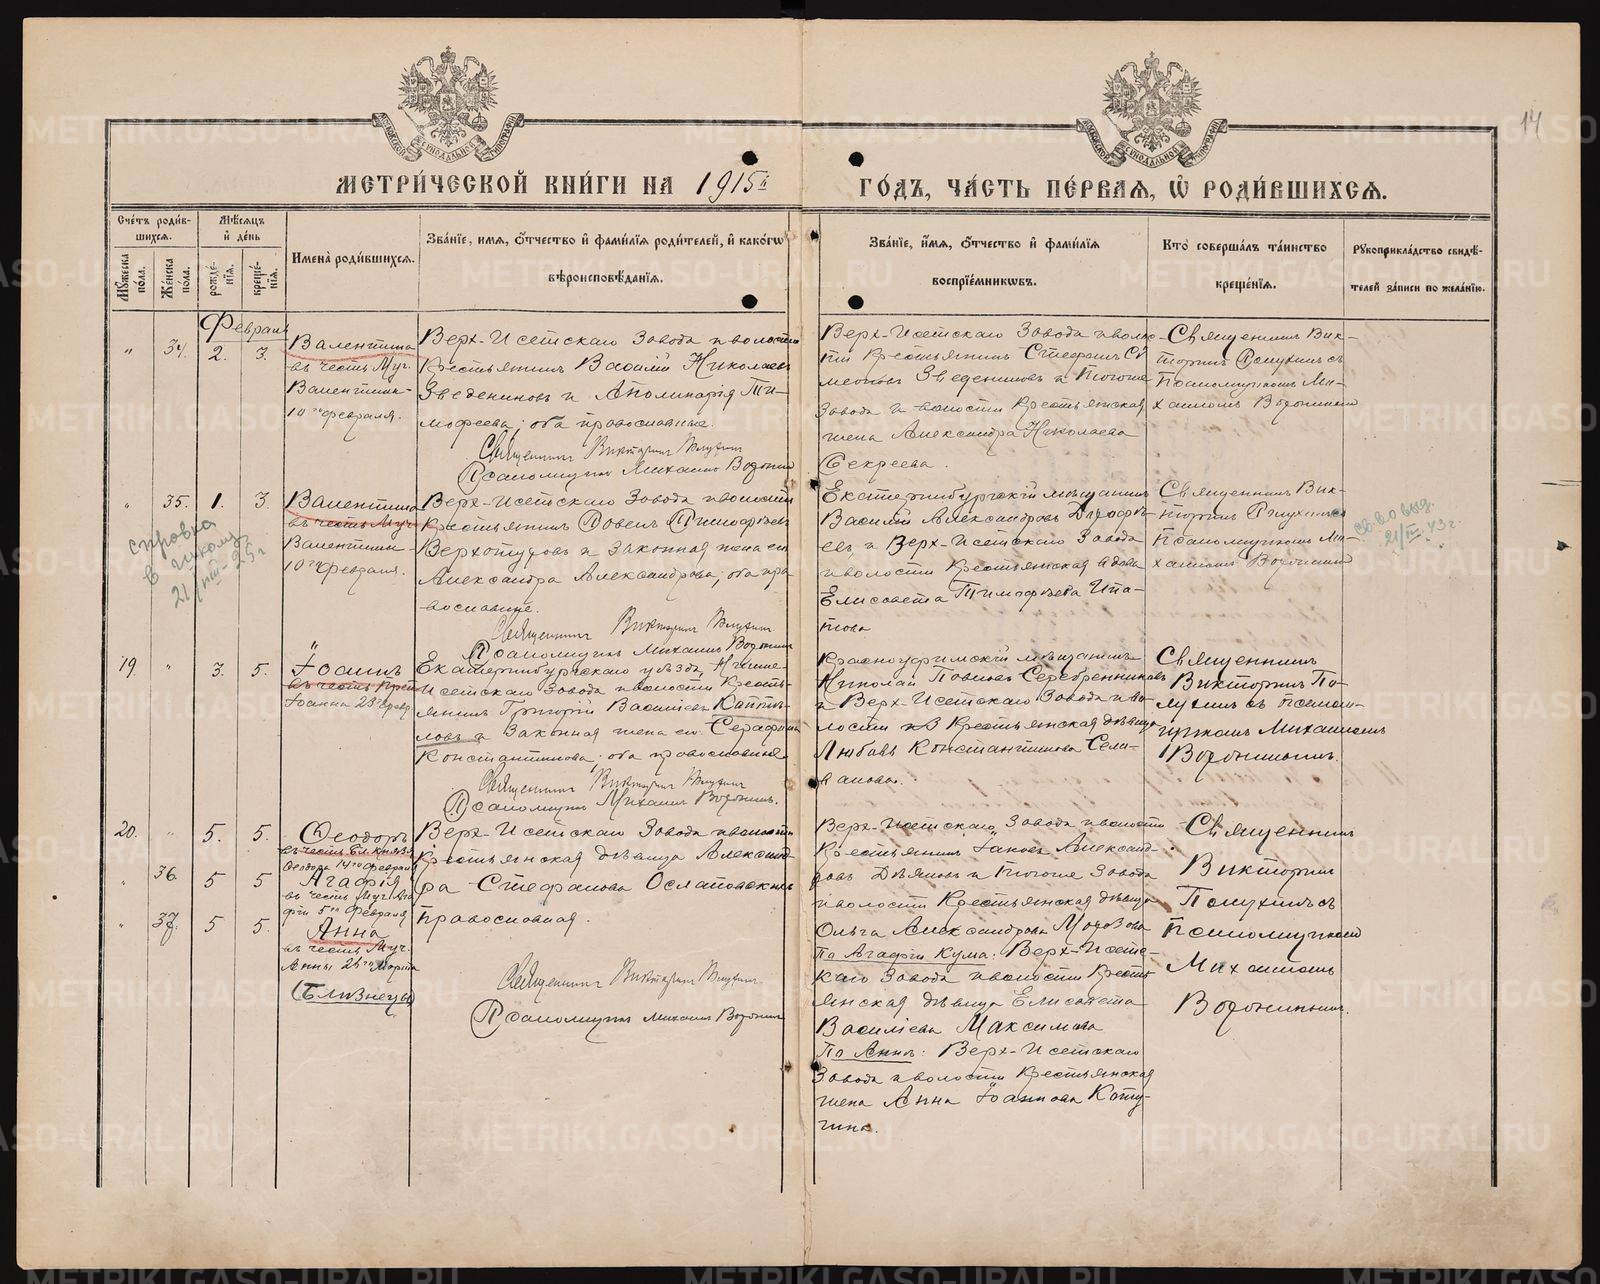 14
МЕТРИ́ЧЕСКОЙ КНИ́ГИ НА 1915й ГО́ДЪ, ЧА́СТЬ ПЕ́РВАЯ, Ѡ РОДИ́ВШИХСЯ.
Сче́тъ роди́вшихся.
Му́жеска по́ла.
Же́нска по́ла.
Мѣ́сяцъ и де́нь
рожде́нїя.
креще́нїя.
Имена̀ роди́вшихся.
Зва́нїе, и́мя, о́тчество и фами́лїя роди́телей, и како́гѡ
вѣроисповѣ́данїя.
Зва́нїе, и́мя, о́тчество и фами́лїя
воспрїе́мникѡвъ.
Кто̀ соверша́лъ та́инство
креще́нїя.
Рꙋкоприкла́дство свидѣ́-
телей за́писи по жела́нїю.
Февраль
" 34. 2. 3.
Валентина
въ честь Муч.
Валентины
10го февраля.
Верх-Исетскаго Завода и волости
Крестьянинъ Василій Николаев
Звединиковъ и Аполинарія Ти-
мофеева; оба православные.
Священникъ Викторинъ
Псаломщик Михаилъ Воронин
Верх-Исетскаго Завода и воло-
сти Крестьянинъ Стефанъ Си
меоновъ Звединиковъ и Тогоже
Завода и волости Крестьянская
жена Александра Николаева
Секреева.
Священникъ Вик-
торинъ съ
Псаломщикомъ Ми-
хаиломъ Воронинымъ
" 35. 1. 3.
Валентина
въ честь Муч.
Валентины
10го февраля.
справка
21/VIII-25г
Верх-Исетскаго Завода и волости
Крестьянинъ Павелъ Тимофѣевъ
Верхотуровъ и Законная жена его
Александра Александрова; оба пра
вославные.
Священникъ Викторинъ
Псаломщикъ Михаилъ Воронин
Екатеринбургскій мѣщанинъ
Василій Александровъ Дорофѣ-
евъ и Верх-Исетскаго Завода
и волости Крестьянская вдова
Елисавета Тимофѣева Ипа-
това
Священникъ Вик-
торинъ съ
Псаломщикомъ Ми-
хаиломъ Воронинымъ
св-во выд.
21/III 43г.
19. " 3. 5.
Іоаннъ
въ честь Прет.
Іоанна 23 Февр.
Екатеринбургскаго уѣзда, Нижне-
Исетскаго Завода и волости Кресть-
янинъ Григорій Василіевъ
и Законная жена его Серафима
Константинова; оба православные
Священникъ Викторинъ
Псаломщикъ Михаилъ Воронинъ.
Красноуфимскій мѣщанинъ
Николай Павловъ Серебренниковъ
и Верх-Исетскаго Завода и во-
лости Крестьянская дѣвица
Любовь Константинова Сели-
ванова.
Священникъ
Викторинъ По-
лухинъ съ Псалом-
щикомъ Михаиломъ
Воронинымъ.
20. " 5. 5.
Феодоръ
въ честь Бл. Князя
Феодора 14го февраля
" 36. 5 5
Агафія
въ честь Муч. Ага
фіи 5го Февраля
" 37. 5 5.
Анна
въ честь Муч.
Анны 26го Марта
(Близнецы)
Верх-Исетскаго Завода и волости
Крестьянская дѣвица Александ-
ра Стефанова
Православная.
Священникъ Викторинъ
Псаломщикъ Михаилъ Воронинъ
Верх-Исетскаго Завода и волости
Крестьянинъ Іаковъ Александ-
ровъ и Тогоже Завода
и волости Крестьянская дѣвица
Ольга Александрова Морозова
По Агафіи кума: Верх-Исетс-
каго Завода и волости Кресть
янская дѣвица Елисавета
Василіева Максимова
По Аннѣ: Верх-Исетскаго
Завода и волости Крестьянская
жена Анна Іоаннова Кату-
гина.
Священникъ
Викторинъ
Полухинъ съ
Псаломщикомъ
Михаиломъ
Воронинымъ.
METRIKI.GASO-URAL.RU